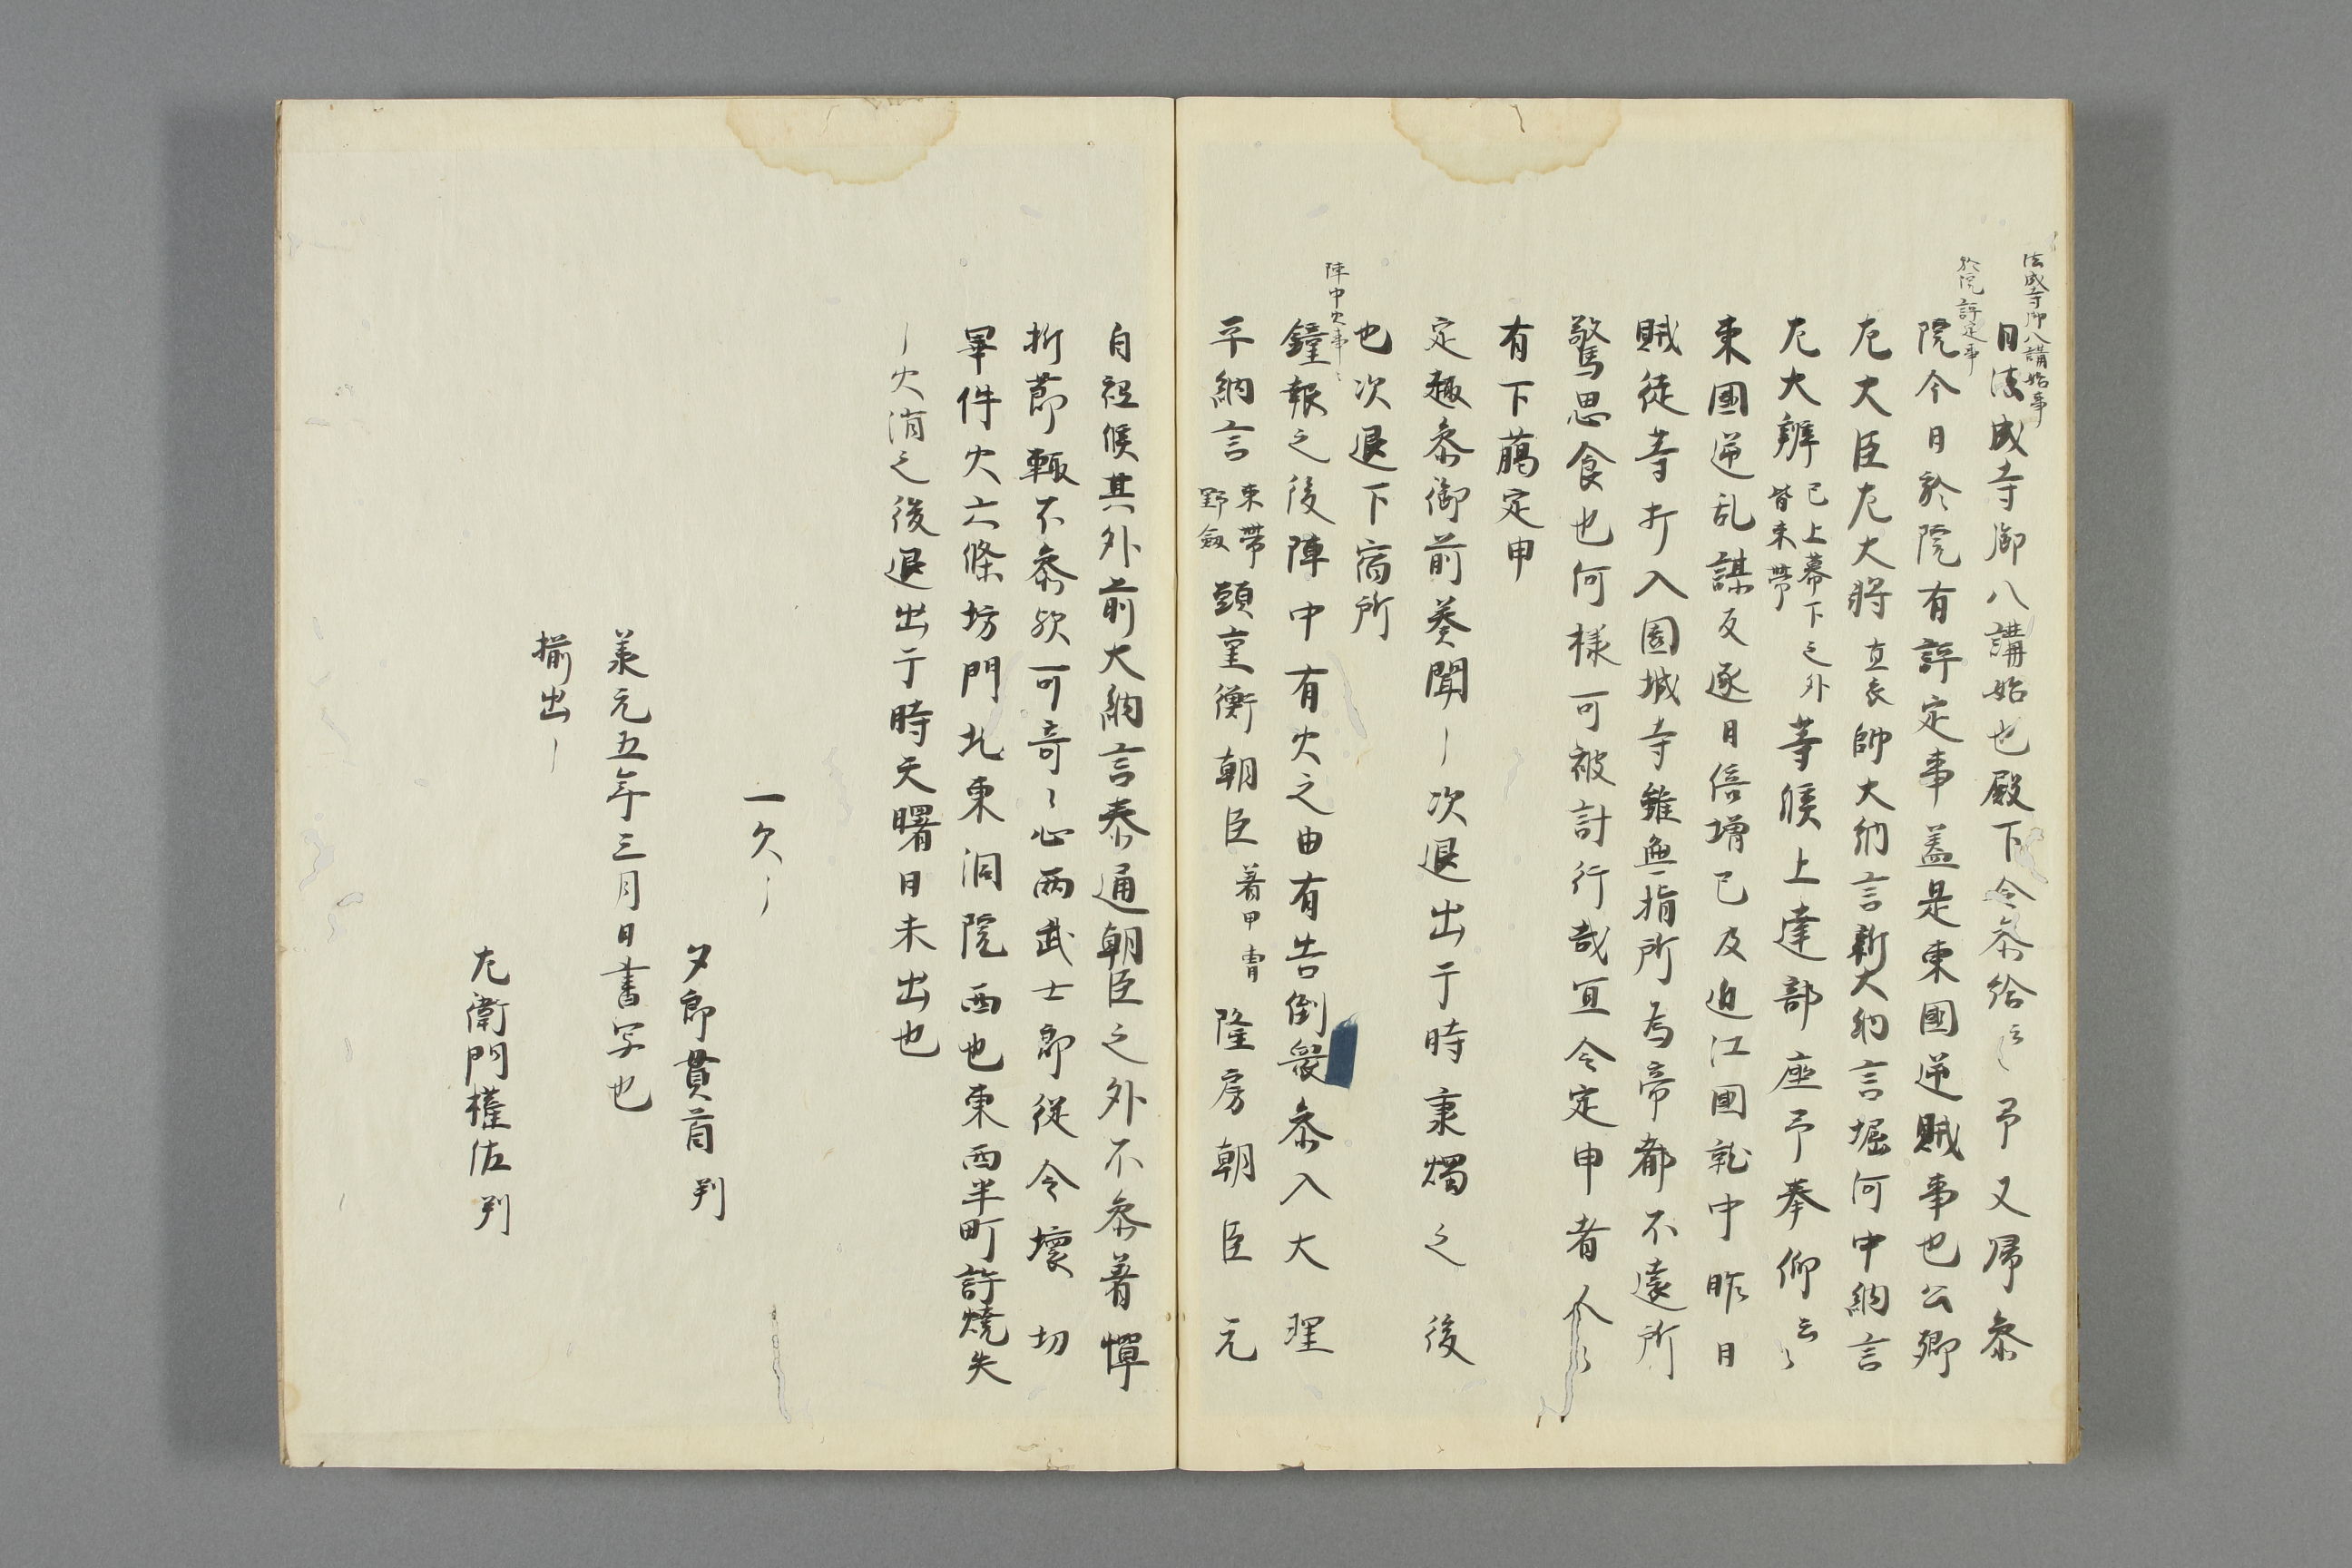 法成寺御八講始事
日法成寺御八講始也殿下令参給云〻予又帰参
於院評定事
院今日於院有評定事蓋是東國逆賊事也公卿
左大臣左大将直衣帥大納言新大納言堀河中納言
左大辨已上幕下之外皆束帯等候上達部座予奉仰云〻
東國逆乱謀反逐日倍増已及近江國乾中昨日
賊徒等打入園城寺雖無指所為帝都不遠所
驚思食也何様可被計行哉宜令定申者人〻
有下﨟定申
定趣参御前奏聞〡次退出于時秉燭之後
也次退下宿所
陣中火事〻
鐘報之後陣中有火之由有告倒衣参入大理
平納言束帯野劔頭重衡朝臣著甲冑隆房朝臣元
自祗候其外前大納言泰通朝臣之外不参着憚
折節輙不参欤可奇〻心両武士郎従令壞切
畢件火六條坊門北東洞院西也東西半町許焼失
〡火消之後退出于時天曙日未出也
一欠〡
夕郎貫首判
羕元五年三月日書写也
揃出〡
左衛門権佐判